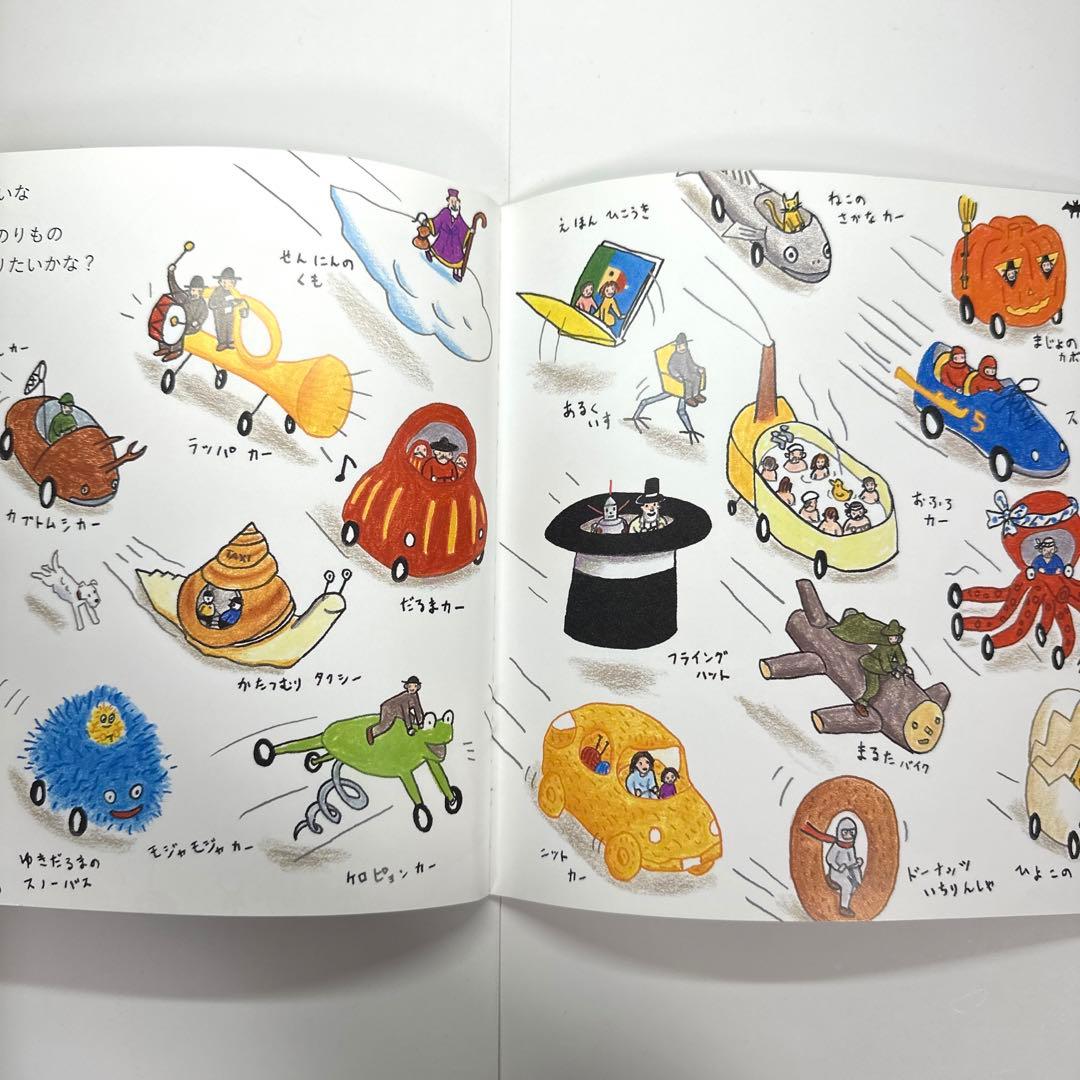 いな
のりもの
りたいかな？
せんにんの
くも
カー
ラッパ カー
カブトムシカー
TAXI
だるまカー
かたつむり タクシー
モジャモジャ カー
ゆきだるまの
スノーバス
ケロピョン カー
えほん ひこうき
ねこの
さかなカー
まじょの
カボ
あるく
いす
5
ス
おふろ
カー
フライング
ハット
まるた バイク
ニット
カー
ドーナッツ
いちりんしゃ
ひよこの